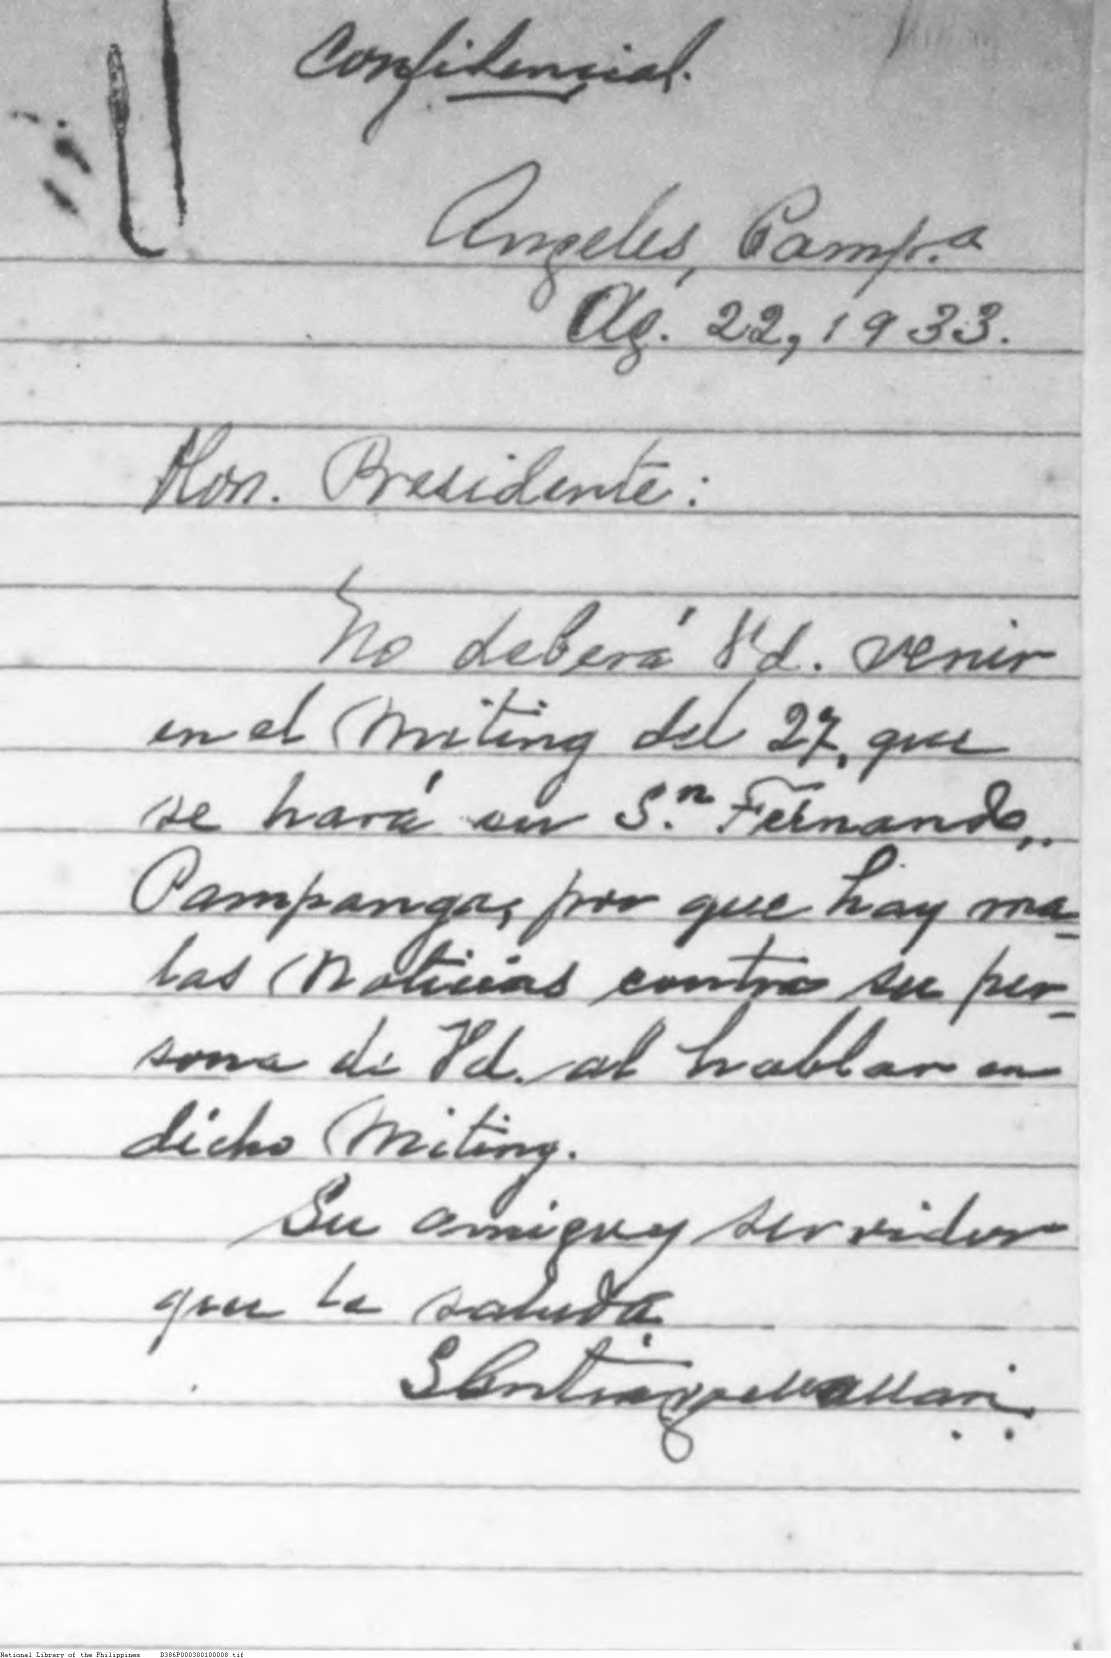 Confidencial.
Angeles, Pamp.ª
Ag. 22, 1933.
Hon. Presidente:
No deberá Vd. venir
en el Miting del 27, que
se hará en S.n Fernando,
Pampanga, por que hay ma-
las Noticias contra su per-
sona de Vd. al hablar en
dicho Miting.
Su amigo y servidor
que le saluda
National Library of the Philippines B386P000300100008.tif